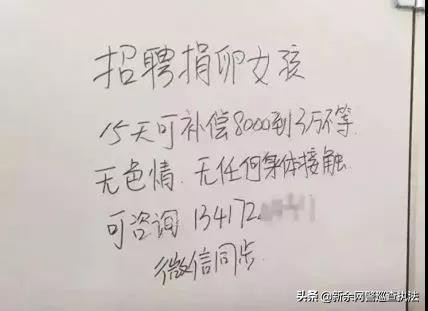 招聘捐卵女孩
15天可补偿8000到3万不等.
无色情.无任何身体接触
可咨询 134172
微信同步.
头条 @新余网警巡查执法